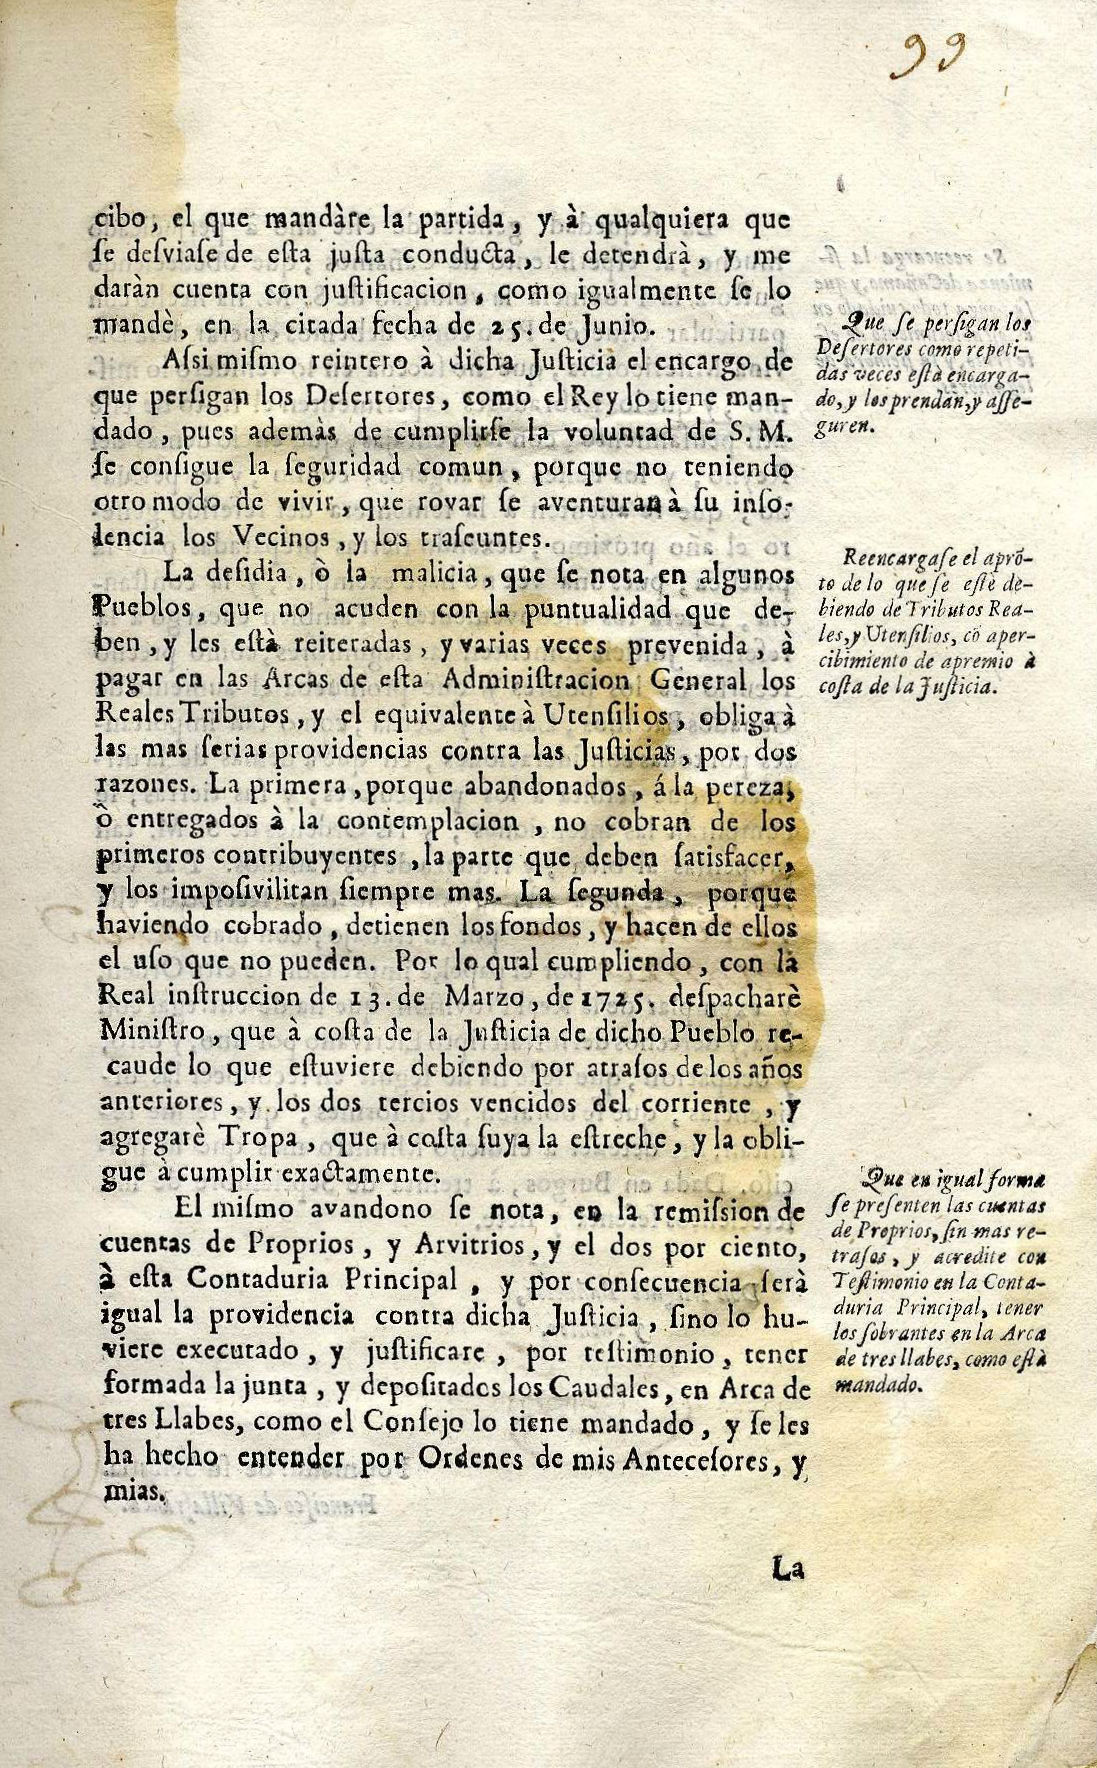 99
cibo, el que mandàre la partida, y à qualquiera que
ſe deſviaſe de eſta juſta conducta, le detendrà, y me
daràn cuenta con juſtificacion, como igualmente ſe lo
mandè, en la citada fecha de 25. de Junio.
Aſsi miſmo reintero à dicha Juſticia el encargo de
que perſigan los Deſertores, como el Rey lo tiene man-
dado, pues además de cumplirſe la voluntad de S. M.
ſe conſigue la ſeguridad comun, porque no teniendo
otro modo de vivir, que rovar ſe aventuran à ſu inſo-
lencia los Vecinos, y los traſeuntes.
La deſidia, ò la malicia, que ſe nota en algunos
Pueblos, que no acuden con la puntualidad que de-
ben, y les eſtà reiteradas, y varias veces prevenida, à
pagar en las Arcas de eſta Adminiſtracion General los
Reales Tributos, y el equivalente à Utenſilios, obliga à
las mas ſerias providencias contra las Juſticias, por dos
razones. La primera, porque abandonados, á la pereza,
ò entregados à la contemplacion, no cobran de los
primeros contribuyentes, la parte que deben ſatisfacer,
y los impoſivilitan ſiempre mas. La ſegunda, porque
haviendo cobrado, detienen los fondos, y hacen de ellos
el uſo que no pueden. Por lo qual cumpliendo, con la
Real inſtruccion de 13. de Marzo, de 1725. deſpacharè
Miniſtro, que à coſta de la Juſticia de dicho Pueblo re-
caude lo que eſtuviere debiendo por atraſos de los años
anteriores, y los dos tercios vencidos del corriente, y
agregarè Tropa, que à coſta ſuya la eſtreche, y la obli-
gue à cumplir exactamente.
El miſmo avandono ſe nota, en la remiſsion de
cuentas de Proprios, y Arvitrios, y el dos por ciento,
à eſta Contaduria Principal, y por conſecuencia ſerà
igual la providencia contra dicha Juſticia, ſino lo hu-
viere executado, y juſtificare, por teſtimonio, tener
formada la junta, y depoſitados los Caudales, en Arca de
tres Llabes, como el Conſejo lo tiene mandado, y ſe les
ha hecho entender por Ordenes de mis Anteceſores, y
mias.
La
Que ſe perſigan los
Deſertores como repeti-
das veces eſtà encarga-
do, y los prendan, y aſſe-
guren.
Reencargaſe el aprõ-
to de lo que ſe eſtè de-
biendo de Tributos Rea-
les, y Utenſilios, cõ aper-
cibimiento de apremio à
coſta de la Juſticia.
Que en igual forma
ſe preſenten las cuentas
de Proprios, ſin mas re-
traſos, y acredite con
Teſtimonio en la Conta-
duria Principal, tener
los ſobrantes en la Arca
de tres llabes, como eſtà
mandado.